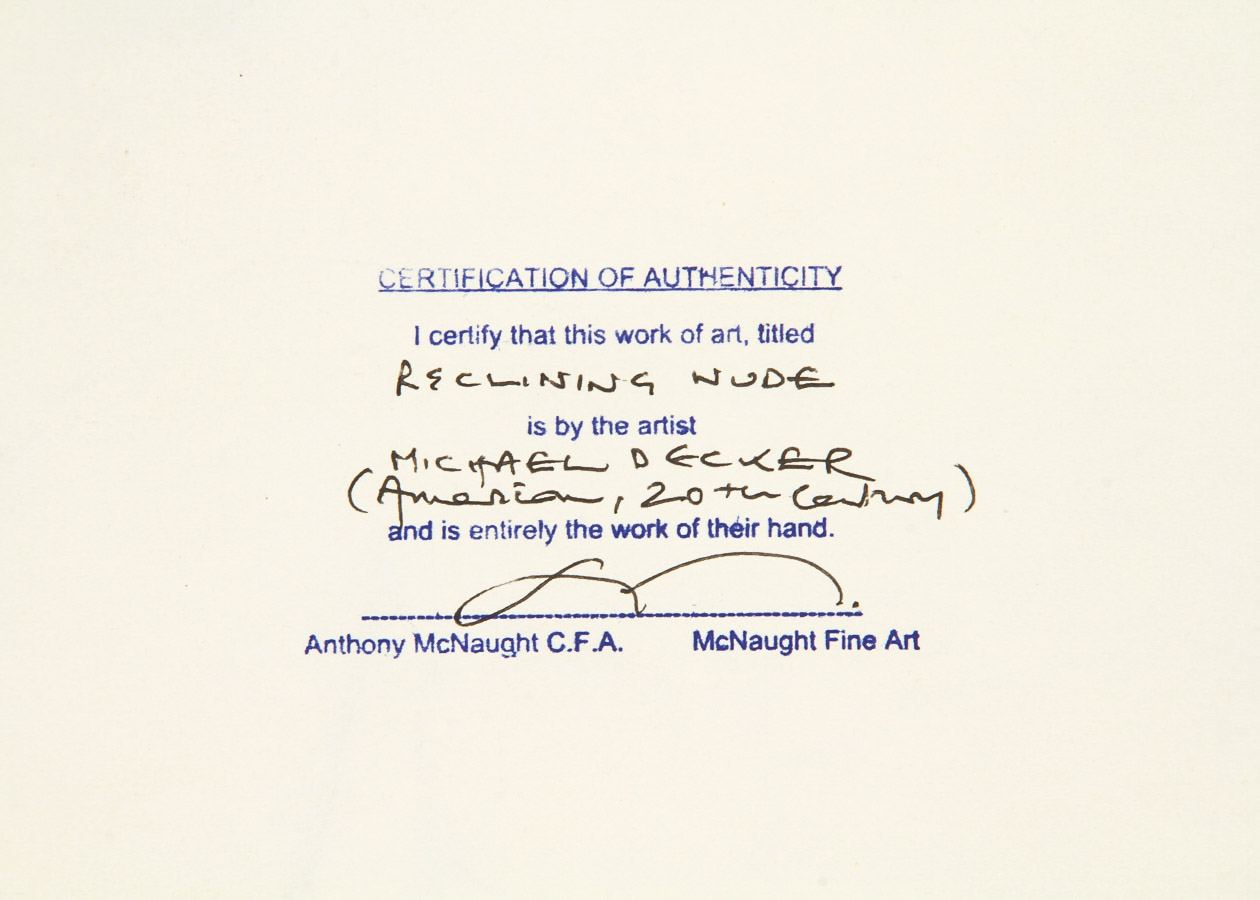 CERTIFICATION OF AUTHENTICITY
I certify that this work of art, titled
RECLINING NUDE
is by the artist
MICHAEL DECKER
(American, 20th Century)
and is entirely the work of their hand.
Anthony McNaught C.F.A. McNaught Fine Art